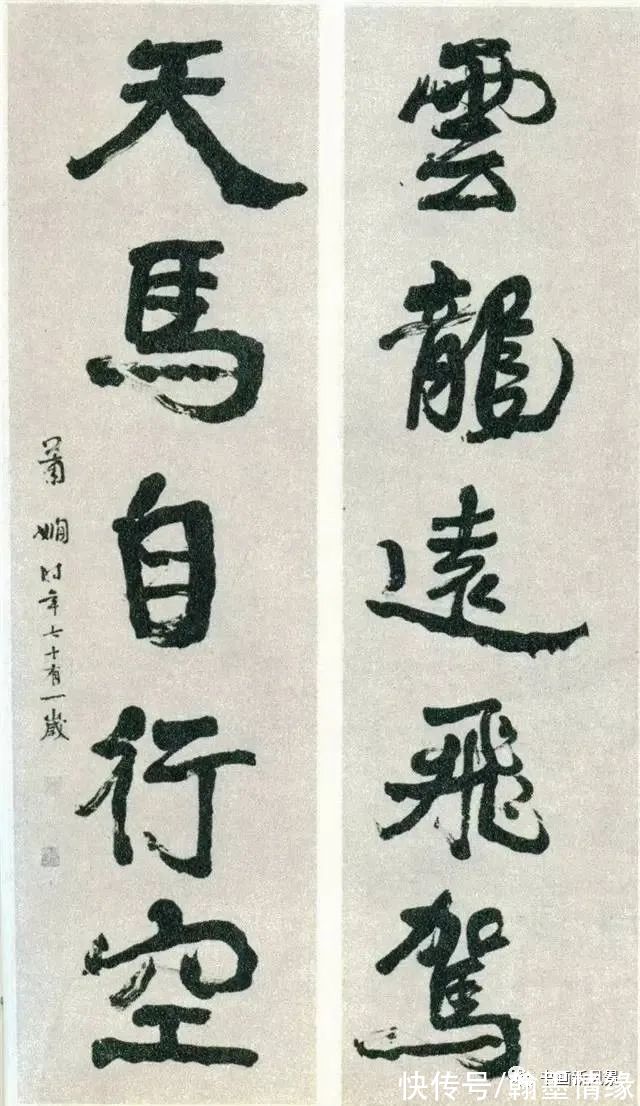 雲龍遠飛駕
天馬自行空
蕭嫻時年七十有一歲
书画新风景
快传号/翰墨情缘